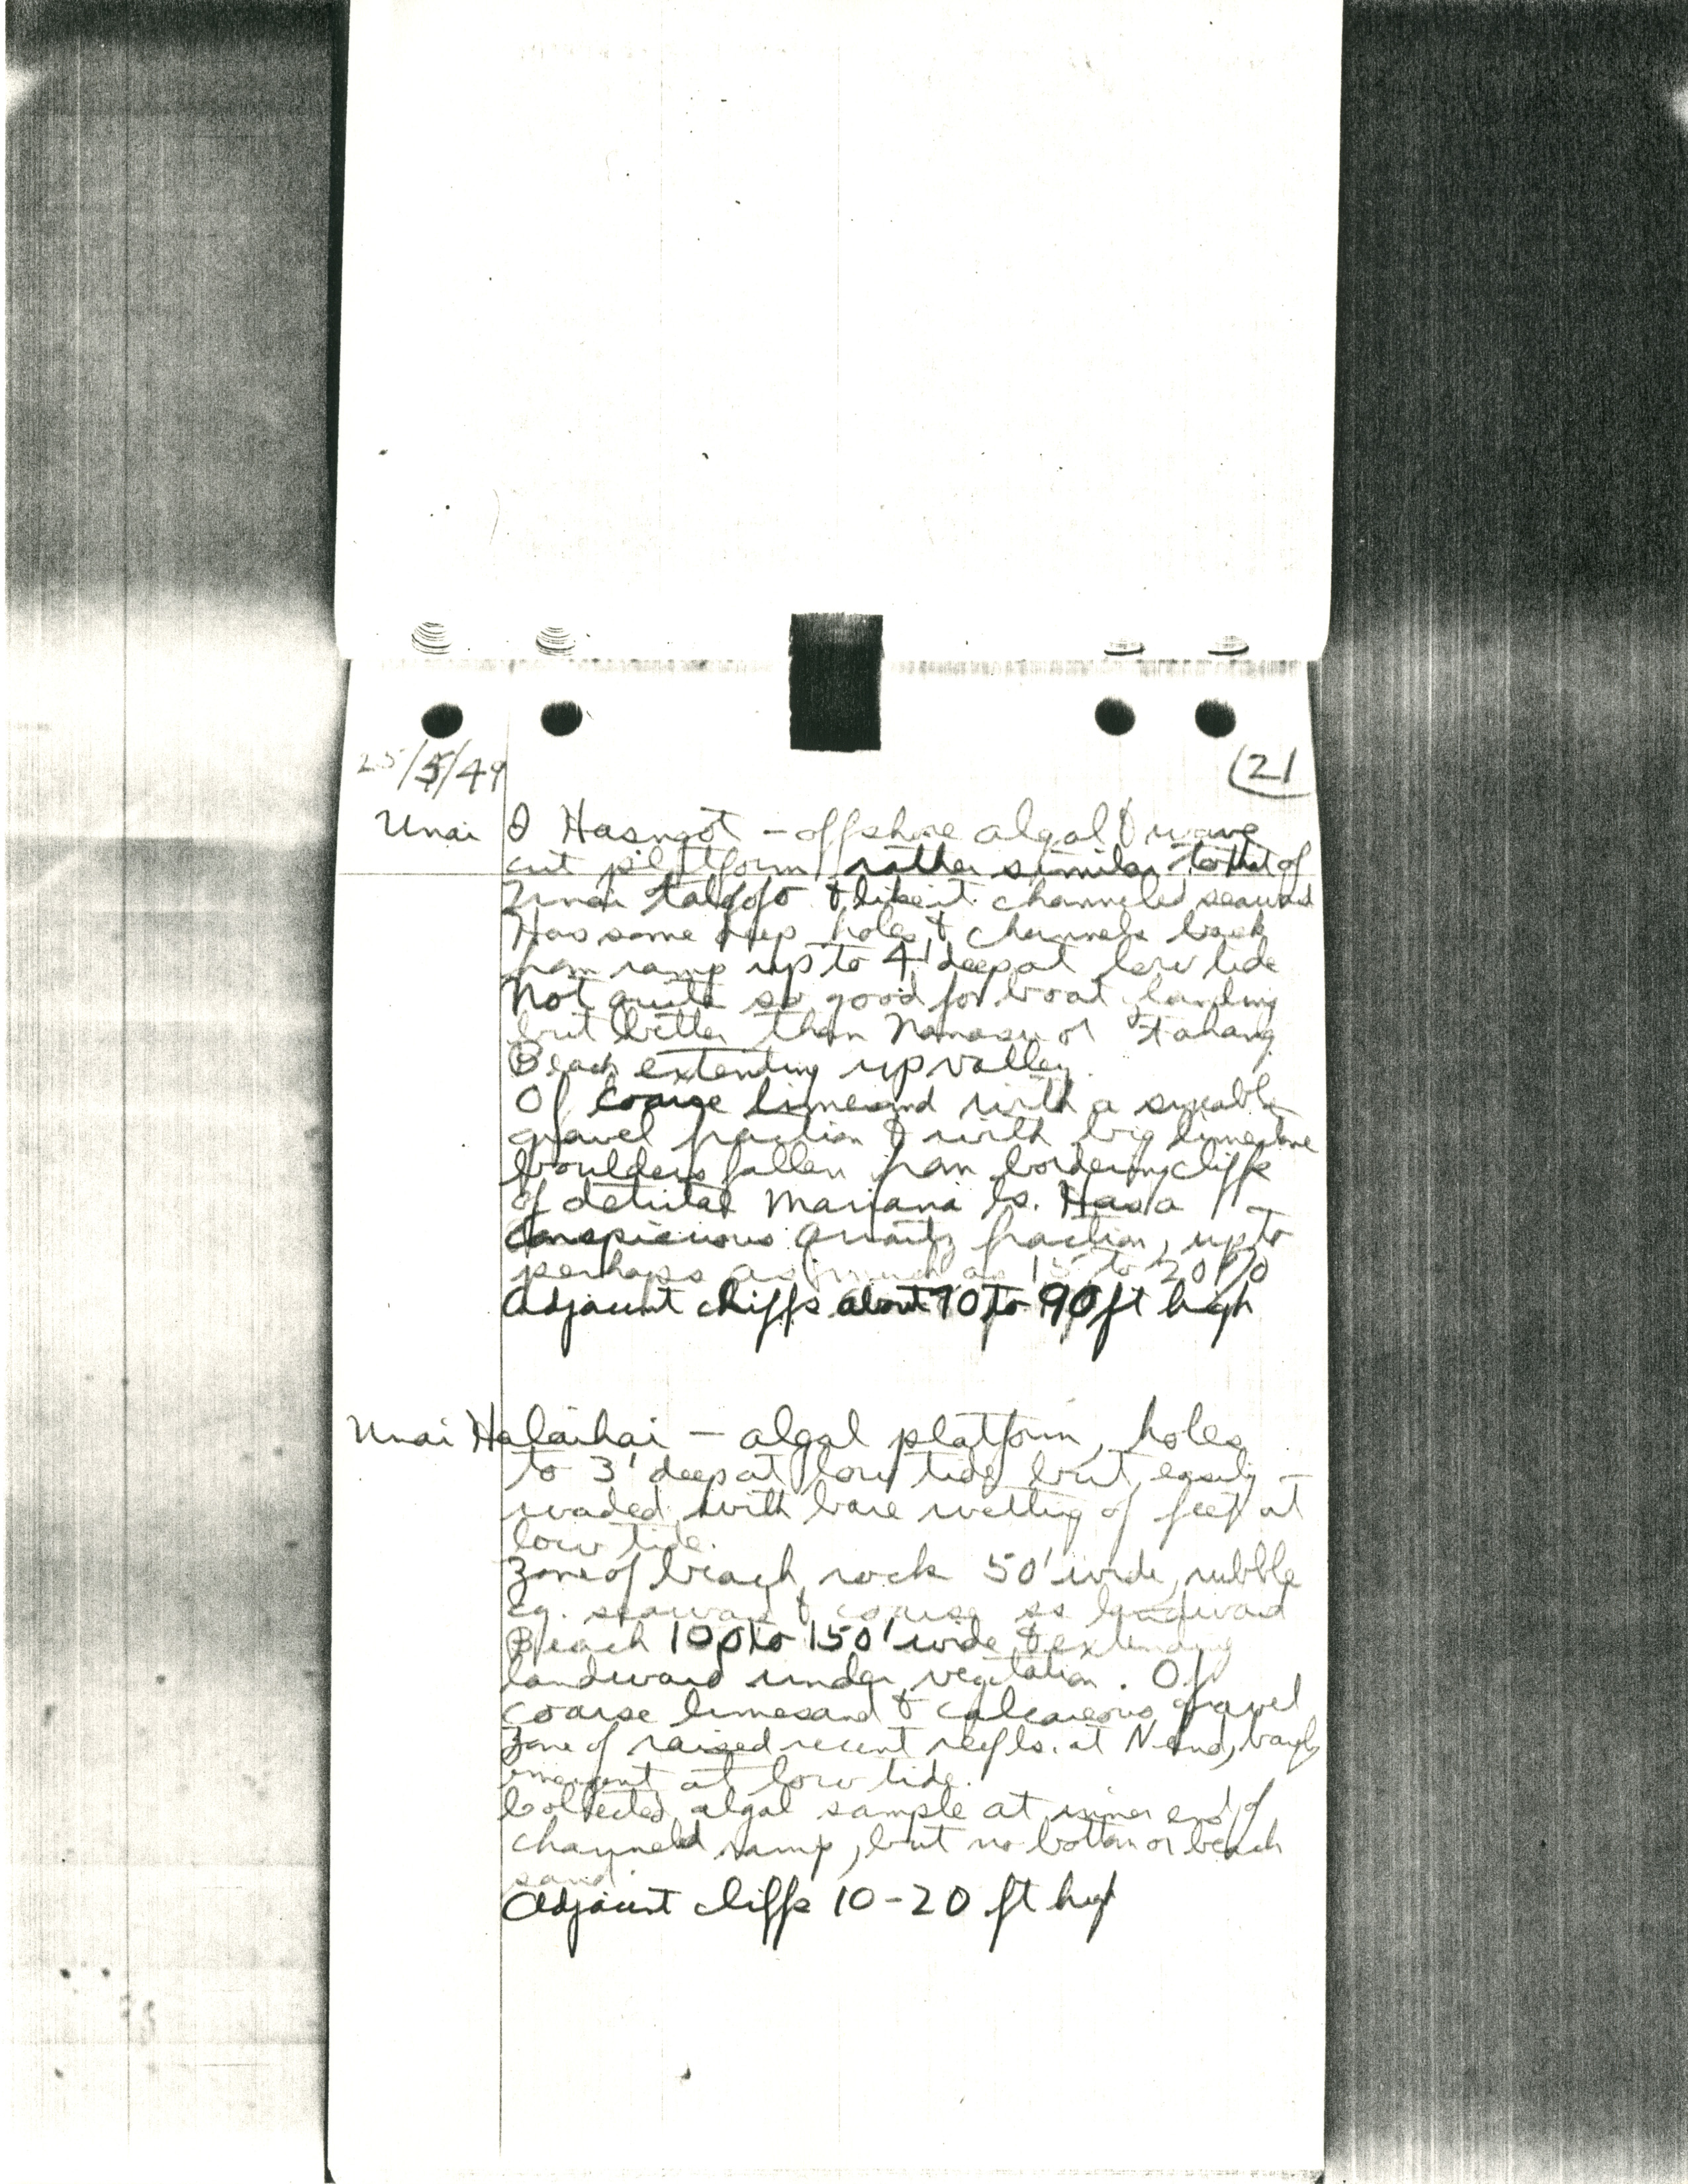 25/5/49
(21
Unai O Hasngot - offshore algal & wave
cut platform rather similar to that of
Unai Talofofo & like it channeled seaward
Has some deep holes & channels back
from ramp up to 4' deep at low tide
Not quite so good for boat landing
but better than Nanasu or Fahang
Beach extenting up valley.
Of coarse limesand with a sizeable
gravel fraction & with big limestone
boulders fallen from bordering cliffs
of detrital Mariana ls. Has a
conspicious quartz fraction, up to
perhaps as much as 15 to 20%
Adjacent cliffs about 70 to 90 ft high
Unai Halaihai - algal platform, holes
to 3' deep at low tide but easily -
waded with bare wetting of feet at
low tide.
Zone of beach rock 50' wide, rubble
cg. seaward & coarse ss landward
Beach 100 to 150' wide & extending
landward under vegetation. Of
coarse limesand & calcareous gravel
Zone of raised recent reef ls. at N end, barely
emergent at low tide.
Collected algal sample at inner end of
channeld ramp, but no bottom or beach
sand.
Adjacent cliffs 10-20 ft high